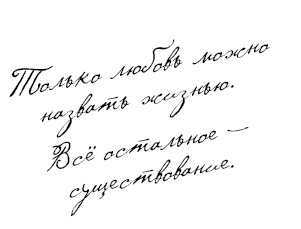 Только любовь можно
назвать жизнью.
Всё остальное –
существование.